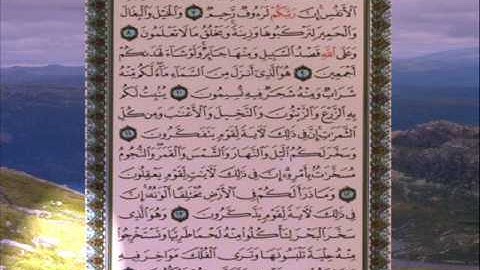 ٱلۡأَنفُسِۚ إِنَّ رَبَّكُمۡ لَرَءُوفٞ رَّحِيمٞ ٧ وَٱلۡخَيۡلَ وَٱلۡبِغَالَ
وَٱلۡحَمِيرَ لِتَرۡكَبُوهَا وَزِينَةٗۚ وَيَخۡلُقُ مَا لَا تَعۡلَمُونَ ٨
وَعَلَى ٱللَّهِ قَصۡدُ ٱلسَّبِيلِ وَمِنۡهَا جَآئِرٞۚ وَلَوۡ شَآءَ لَهَدَىٰكُمۡ
أَجۡمَعِينَ ٩ هُوَ ٱلَّذِيٓ أَنزَلَ مِنَ ٱلسَّمَآءِ مَآءٗۖ لَّكُم مِّنۡهُ
شَرَابٞ وَمِنۡهُ شَجَرٞ فِيهِ تُسِيمُونَ ١٠ يُنۢبِتُ لَكُم
بِهِ ٱلزَّرۡعَ وَٱلزَّيۡتُونَ وَٱلنَّخِيلَ وَٱلۡأَعۡنَٰبَ وَمِن كُلِّ
ٱلثَّمَرَٰتِۚ إِنَّ فِي ذَٰلِكَ لَأٓيَةٗ لِّقَوۡمٖ يَتَفَكَّرُونَ ١١
وَسَخَّرَ لَكُمُ ٱلَّيۡلَ وَٱلنَّهَارَ وَٱلشَّمۡسَ وَٱلۡقَمَرَۖ وَٱلنُّجُومُ
مُسَخَّرَٰتُۢ بِأَمۡرِهِۦٓۚ إِنَّ فِي ذَٰلِكَ لَأٓيَٰتٖ لِّقَوۡمٖ يَعۡقِلُونَ
١٢ وَمَا ذَرَأَ لَكُمۡ فِي ٱلۡأَرۡضِ مُخۡتَلِفًا أَلۡوَٰنُهُۥٓۚ إِنَّ
فِي ذَٰلِكَ لَأٓيَةٗ لِّقَوۡمٖ يَذَّكَّرُونَ ١٣ وَهُوَ ٱلَّذِي
سَخَّرَ ٱلۡبَحۡرَ لِتَأۡكُلُواْ مِنۡهُ لَحۡمٗا طَرِيّٗا وَتَسۡتَخۡرِجُواْ
مِنۡهُ حِلۡيَةٗ تَلۡبَسُونَهَاۖ وَتَرَى ٱلۡفُلۡكَ مَوَاخِرَ فِيهِ